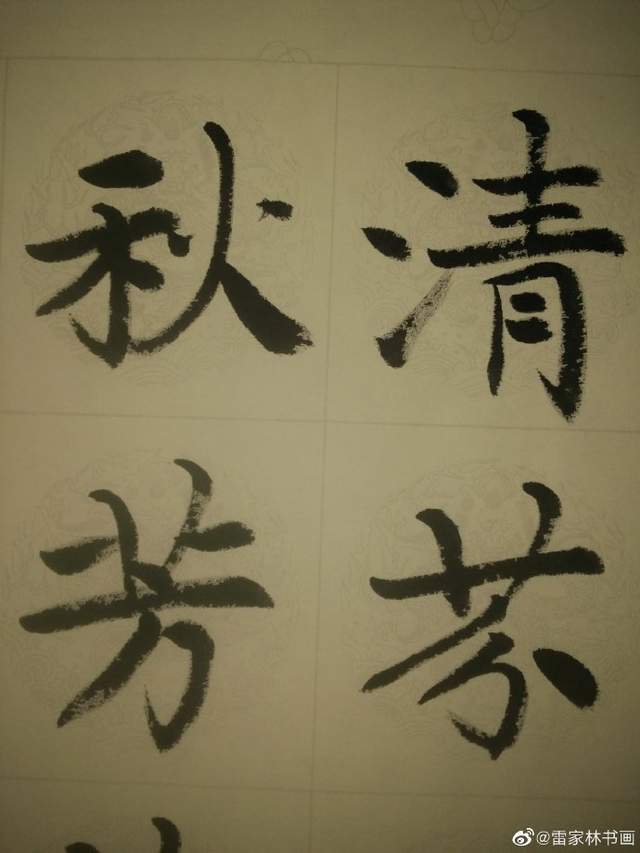 清芬
秋芳
@雷家林书画